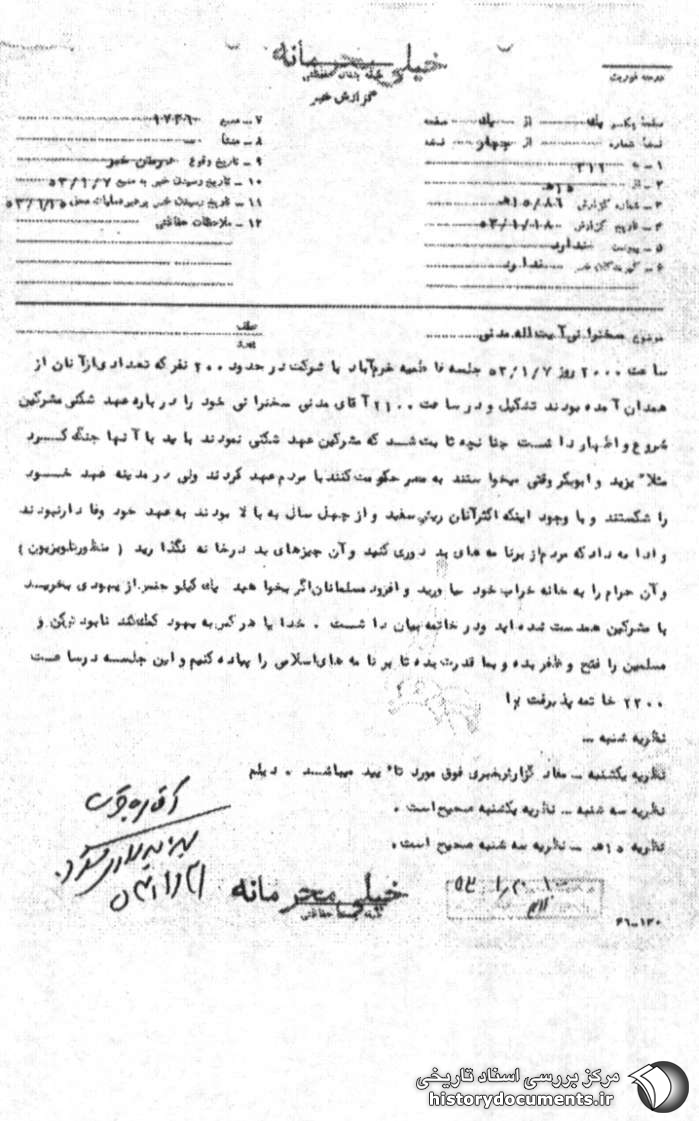 خیلی محرمانه
طبقه بندی حفاظتی
گزارش خبر
درجه فوریت
صفحه یک از یک صفحه
نسخه شماره از چهار نسخه
۱ – به ۳۱۲
۲ – از ۱۵ه
۳ – شماره گزارش ۱۵/۸۶ه
۴ – تاریخ گزارش ۵۳/۱/۱۸
۵ – پیوست ندارد
۶ – گیرندگان خبر ندارد
۷ – منبع ۹۷۳۶
۸ – منشأ
۹ – تاریخ وقوع درمتن خبر
۱۰ – تاریخ رسیدن خبر به منبع ۵۳/۱/۷
۱۱ – تاریخ رسیدن خبر برهبر عملیات محل
۱۲ – ملاحظات حفاظتی
موضوع سخنرانی آیت الله مدنی
عطف
پیرو
ساعت ۲۰۰۰ روز ۵۳/۱/۷ جلسه فاطمیه خرم‌آباد با شرکت در حدود ۲۰۰ نفر که تعدادی از آنان از
همدان آمده بودند تشکیل و در ساعت ۲۱۰۰ آقای مدنی سخنرانی خود را درباره عهد شکنی مشرکین
شروع و اظهار داشت چنانچه ثابت شد که مشرکین عهد شکنی نمودند باید با آنها جنگ کرد
مثلا" یزید و ابوبکر وقتی میخواستند به مصر حکومت کنند با مردم عهد کردند ولی در مدینه عهد خود
را شکستند و با وجود اینکه اکثر آنان ریش سفید و از چهل سال به بالا بودند به عهد خود وفادار نبودند
و ادامه داد که مردم از برنامه های بد دوری کنید و آن چیزهای بد در خانه نگذارید ( منظور تلویزیون )
و آن حرام را به خانه خراب خود میاورید و افزود مسلمانان اگر بخواهید یک کیلو جنس از یهودی بخرید
با مشرکین همدست شده اید و در خاتمه بیان داشت . خدایا هر کس به یهود کمک کند نابود کن و
مسلمین را فتح و ظفر بده و بما قدرت بده تا برنامه های اسلامی را پیاده کنیم و این جلسه در ساعت
۲۲۰۰ خاتمه پذیرفت
نظریه شنبه –
نظریه یکشنبه – مفاد گزارش خبری فوق مورد تا" یید میباشد . دیلم
نظریه سه شنبه – نظریه یکشنبه صحیح است .
نظریه ۱۵ه – نظریه سه شنبه صحیح است .
خیلی محرمانه
طبقه بندی حفاظتی
۴۶–۱۳۰
مرکز بررسی اسناد تاریخی
historydocuments.ir